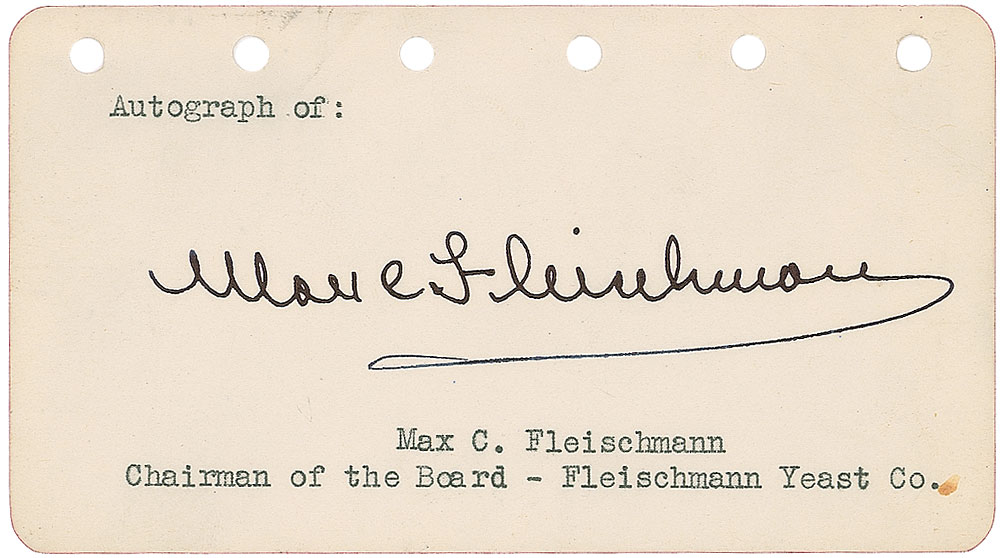 Autograph of:
Max C Fleischmann
Max C. Fleischmann
Chairman of the Board - Fleischmann Yeast Co.